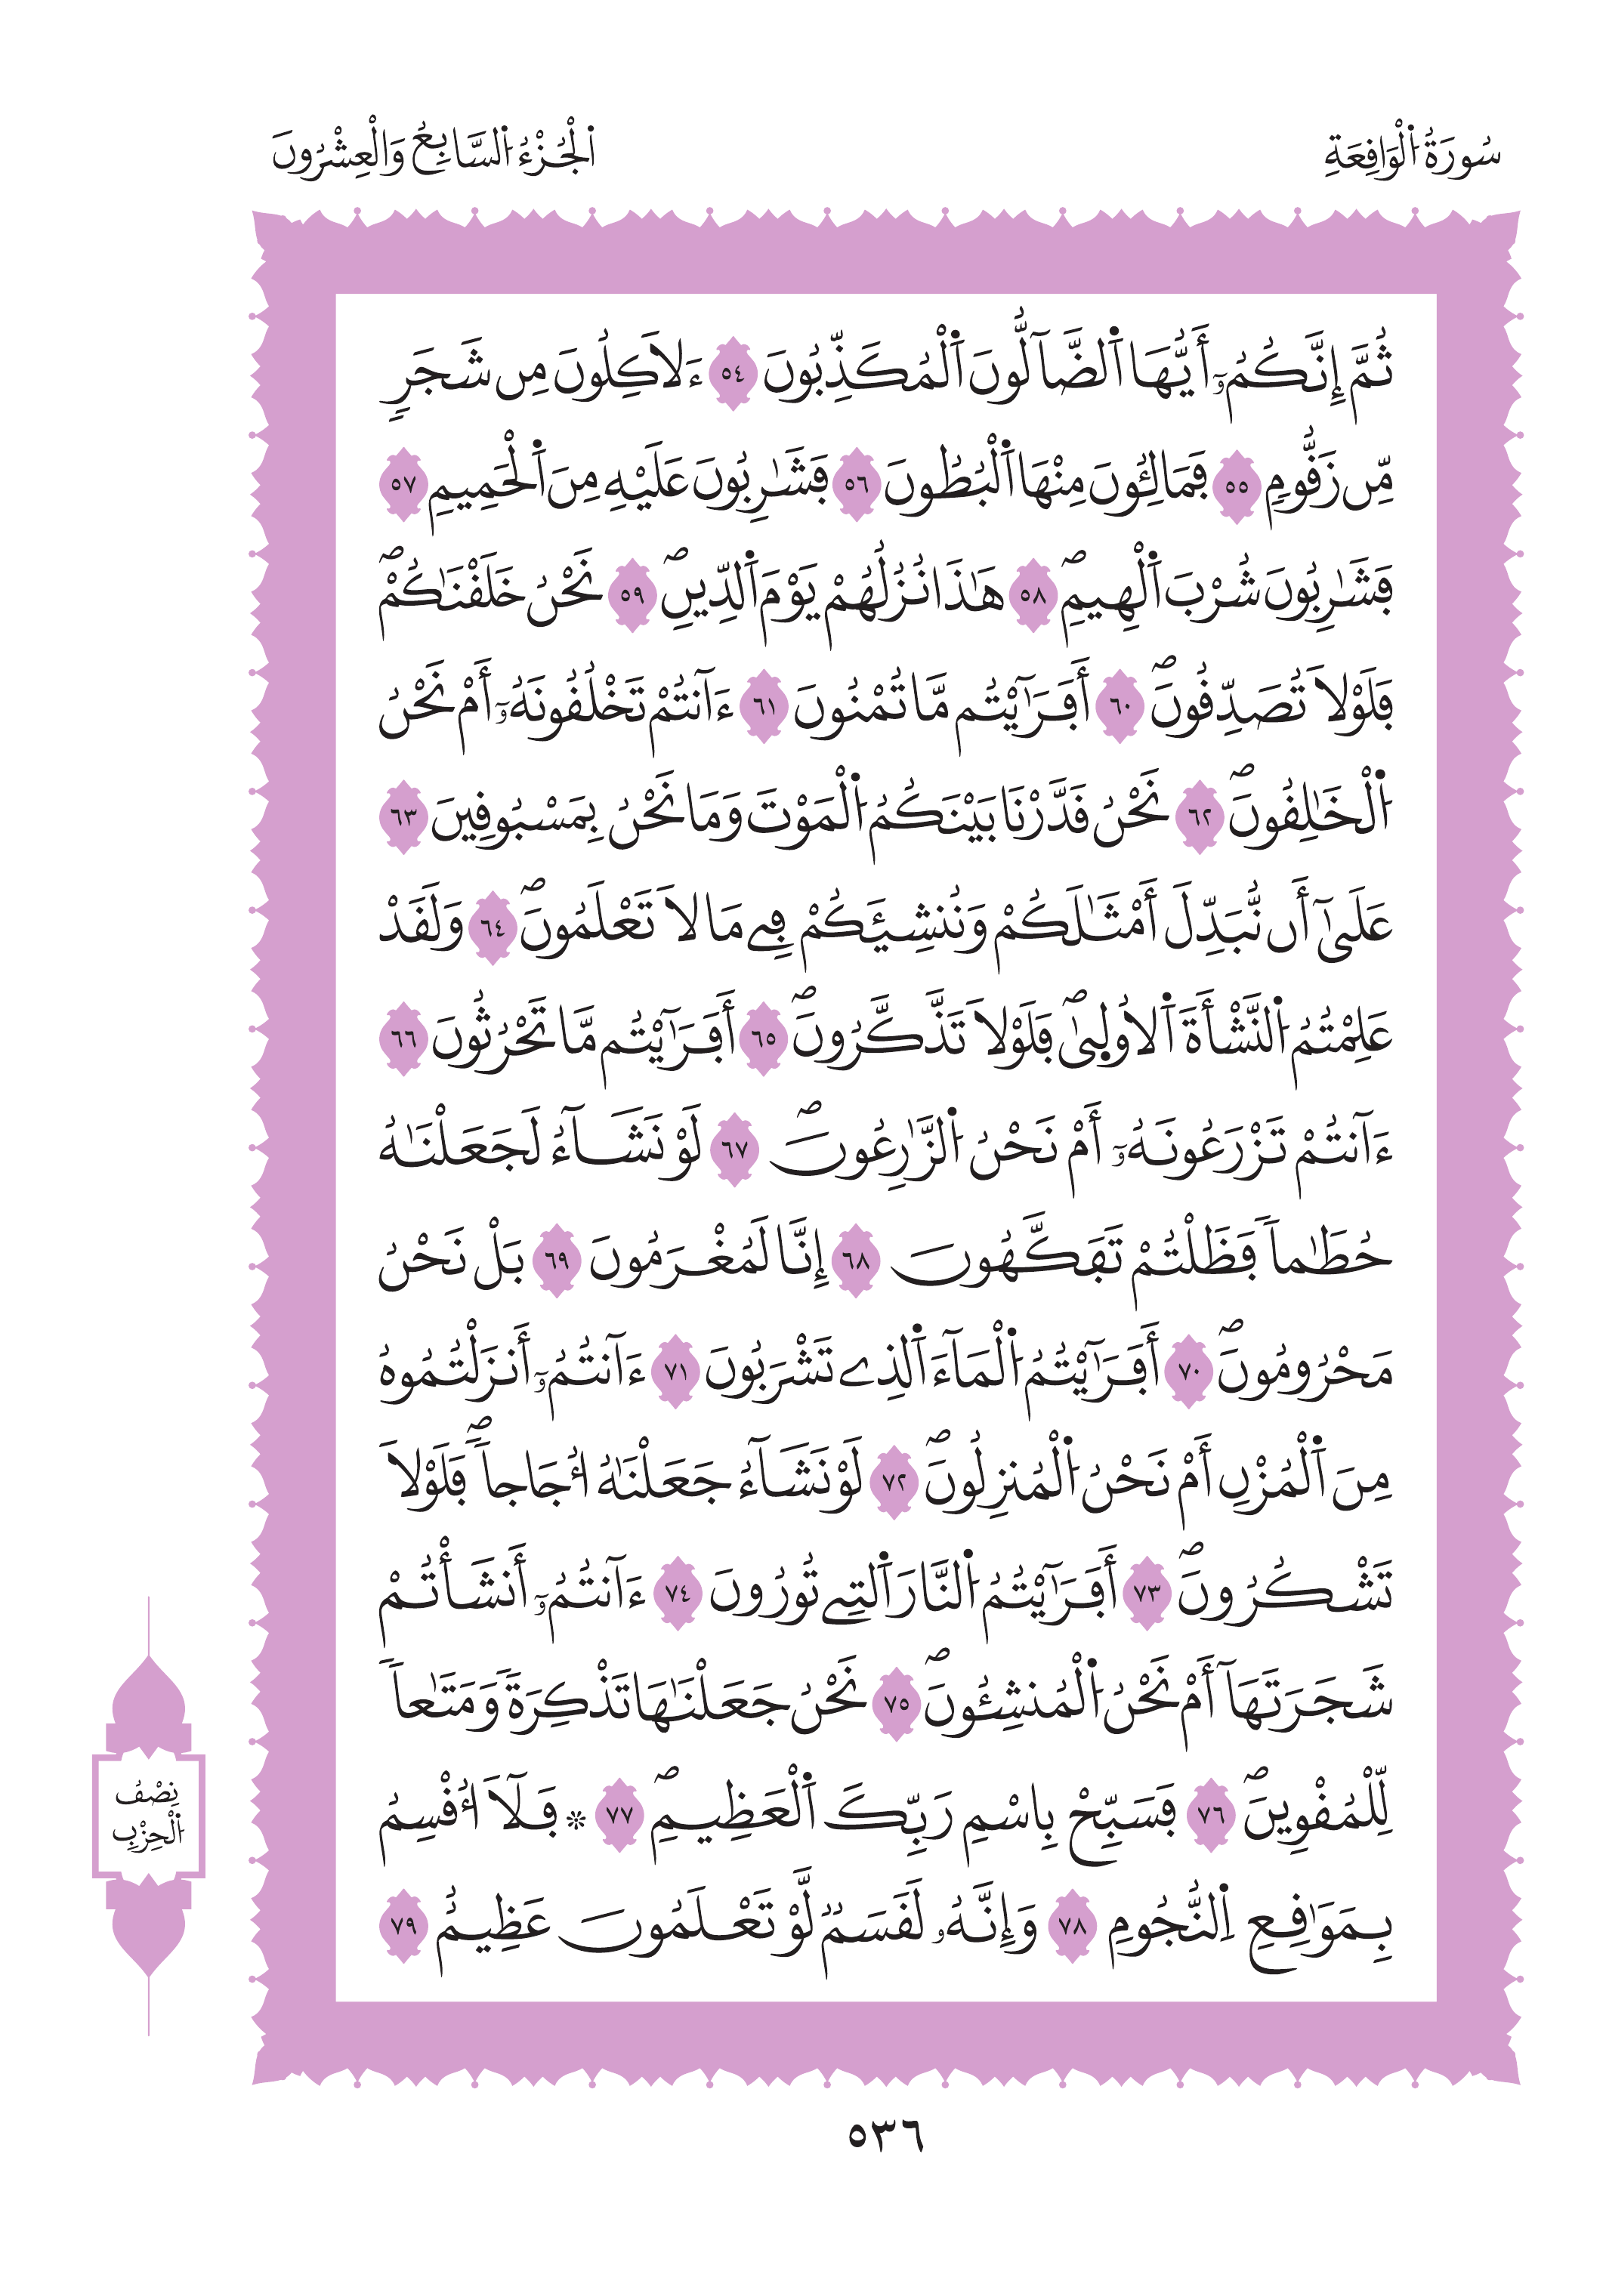 سُورَةُ اُ۬لْوَاقِعَةِ
اَ۬لْجُزْءُ اُ۬لسَّابِعُ وَالْعِشْرُونَ
ثُمَّ إِنَّكُمُۥٓ أَيُّهَا اَ۬لضَّآلُّونَ اَ۬لْمُكَذِّبُونَ ٥٤ ءَلَاكِلُونَ مِن شَجَرٖ
مِّن زَقُّومٖ ٥٥ فَمَالِـُٔونَ مِنْهَا اَ۬لْبُطُونَ ٥٦ فَشَٰرِبُونَ عَلَيْهِ مِنَ اَ۬لْحَمِيمِ ٥٧
فَشَٰرِبُونَ شُرْبَ اَ۬لْهِيمِۖ ٥٨ هَٰذَا نُزُلُهُمْ يَوْمَ اَ۬لدِّينِۖ ٥٩ نَحْنُ خَلَقْنَٰكُمْۖ
فَلَوْلَا تُصَدِّقُونَۖ ٦٠ أَفَرَٰٓيْتُم مَّا تُمْنُونَ ٦١ ءَآنتُمْ تَخْلُقُونَهُۥٓ أَمْ نَحْنُ
اُ۬لْخَٰلِقُونَۖ ٦٢ نَحْنُ قَدَّرْنَا بَيْنَكُمُ اُ۬لْمَوْتَ وَمَا نَحْنُ بِمَسْبُوقِينَ ٦٣
عَلَىٰٓ أَن نُّبَدِّلَ أَمْثَٰلَكُمْ وَنُنشِئَكُمْ فِے مَا لَا تَعْلَمُونَۖ ٦٤ وَلَقَدْ
عَلِمْتُمُ اُ۬لنَّشْأَةَ اَ۬لُاولۭيٰۖ فَلَوْلَا تَذَّكَّرُونَۖ ٦٥ أَفَرَٰٓيْتُم مَّا تَحْرُثُونَ ٦٦
ءَآنتُمْ تَزْرَعُونَهُۥٓ أَمْ نَحْنُ اُ۬لزَّٰرِعُونَۖ ٦٧ لَوْ نَشَآءُ لَجَعَلْنَٰهُ
حُطَٰماٗ فَظَلْتُمْ تَفَكَّهُونَ ٦٨ إِنَّا لَمُغْرَمُونَ ٦٩ بَلْ نَحْنُ
مَحْرُومُونَۖ ٧٠ أَفَرَٰٓيْتُمُ اُ۬لْمَآءَ اَ۬لذِے تَشْرَبُونَ ٧١ ءَآنتُمُۥٓ أَنزَلْتُمُوهُ
مِنَ اَ۬لْمُزْنِ أَمْ نَحْنُ اُ۬لْمُنزِلُونَۖ ٧٢ لَوْ نَشَآءُ جَعَلْنَٰهُ أُجَاجاٗۖ فَلَوْلَا
تَشْكُرُونَۖ ٧٣ أَفَرَٰٓيْتُمُ اُ۬لنَّارَ اَ۬لتِے تُورُونَ ٧٤ ءَآنتُمُۥٓ أَنشَأْتُمْ
شَجَرَتَهَآ أَمْ نَحْنُ اُ۬لْمُنشِـُٔونَۖ ٧٥ نَحْنُ جَعَلْنَٰهَا تَذْكِرَةٗ وَمَتَٰعاٗ
لِّلْمُقْوِينَۖ ٧٦ فَسَبِّحْ بِاسْمِ رَبِّكَ اَ۬لْعَظِيمِۖ ٧٧ ۞ فَلَآ أُقْسِمُ
بِمَوَٰقِعِ اِ۬لنُّجُومِ ٧٨ وَإِنَّهُۥ لَقَسَمٞ لَّوْ تَعْلَمُونَ عَظِيمٌ ٧٩
نِصْفُ
اُ۬لْحِزْبِ
٥٣٦